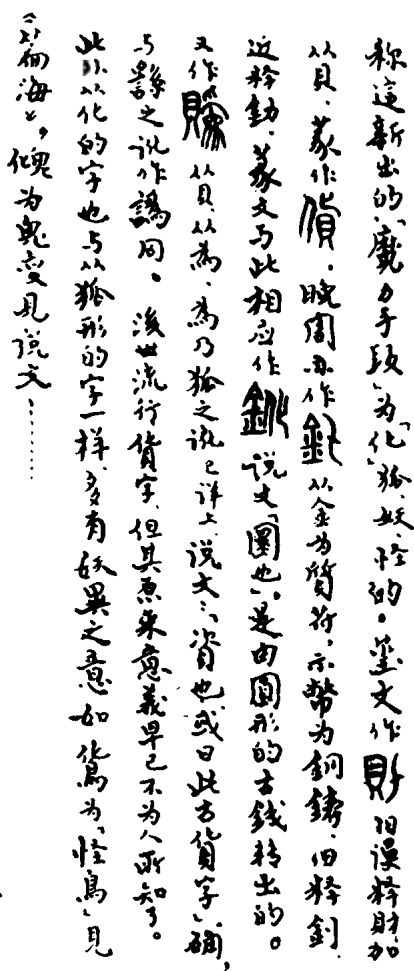 称这新出的「魔力手段」为「化」狐、妖、怪的。玺文作財旧误释财加
从贝、篆作貨,晚周亦作釓从金为质符,示币为铜铸,旧释钊
近释勋,篆文与此相应作鈋说文「圜也」是由圆形的古钱转出的。
又作䞈从贝从為、為乃狐之说已详上说文:「资也或曰此古貨字」确,
与繇之讹作譌同。后世流行貨字,但其原来意义早已不为人所知了。
此外从化的字也与从狐形的字一样,多有妖异之意如鳥为「怪鸟」见
《海》,傀为鬼变见说文………